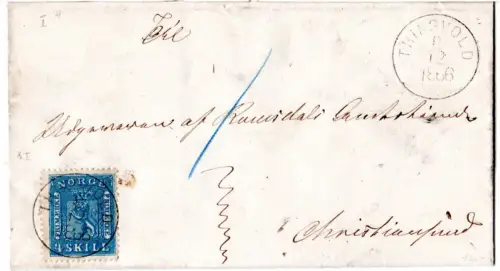 Til
THINGVOLD
12
1868
Udgiveren af Romsdals Amtstidende
NORGE
4 SKILL
Christiansund